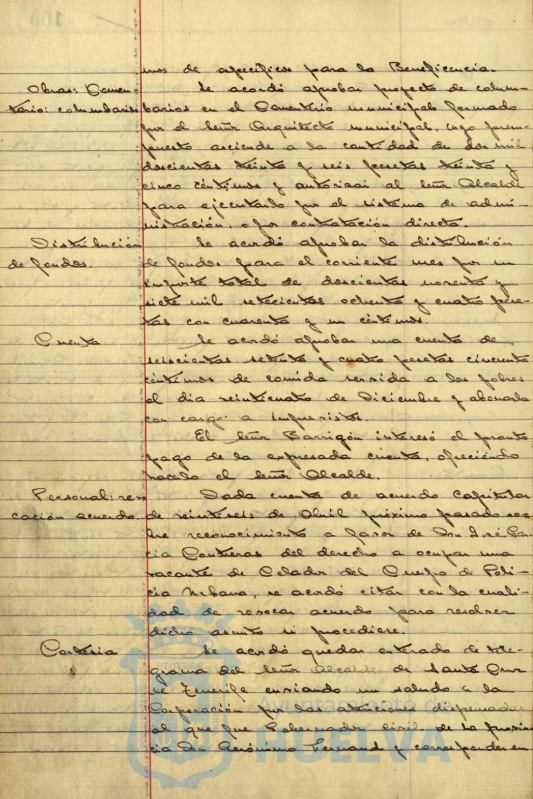 mos de específicos para la Beneficencia.
Obras: Cemen- Se acordó aprobar proyecto de colum-
terio: columbarios barios en el Cementerio municipal formado
por el Señor Arquitecto municipal, cuyo presu-
puesto asciende a la cantidad de dos mil
doscientas treinta y seis pesetas treinta y
cinco céntimos y autorizar al Señor Alcalde
para ejecutarlo por el sistema de admi-
nistración, o por contratación directa.
Distribución Se acordó aprobar la distribución
de fondos. de fondos para el corriente mes por un
importe total de doscientas noventa y
siete mil setecientas ochenta y cuatro pese-
tas con cuarenta y un céntimos.
Cuenta Se acordó aprobar una cuenta de
seiscientas setenta y cuatro pesetas cincuenta
céntimos de comida servida a los pobres
el día veinticuatro de Diciembre y abonada
con cargo a Imprevistos.
El Señor Barrigón interesó el pronto
pago de la expresada cuenta, ofreciendo
hacerlo el Señor Alcalde.
Personal: revo- Dada cuenta de acuerdo capitular
cación acuerdo. de veintiseis de Abril próximo pasado so-
bre reconocimiento a favor de Don José Gar-
cía Contreras del derecho a ocupar una
vacante de Celador del Cuerpo de Poli-
cía Urbana, se acordó citar con la cuali-
dad de revocar acuerdo para resolver
dicho asunto si procediere.
Cortesía Se acordó quedar enterado de tele-
grama del Señor Alcalde de Santa Cruz
de Tenerife enviando un saludo a la
Corporación por las atenciones dispensadas
al que fue Gobernador civil de la provin-
cia Don Gerónimo Fernaud y corresponder en
HUELVA